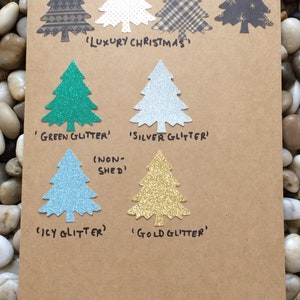 'LUXURY CHRISTMAS'
'GREEN GLITTER'
'SILVER GLITTER'
(NON-
SHED)
'ICY GLITTER'
'GOLD GLITTER'